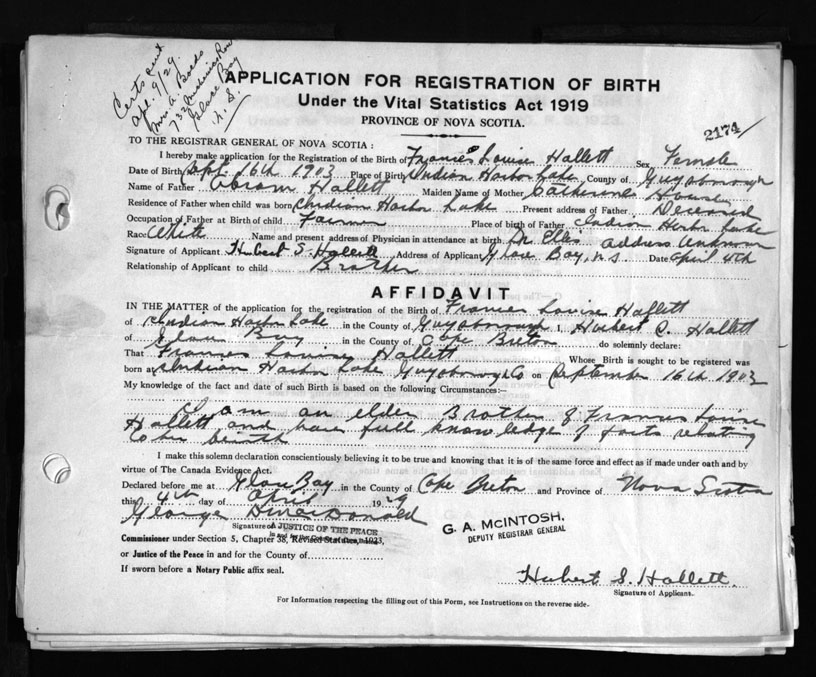 Certs sent
Apl. 9/29.
Mrs. A.
73
Glace Bay
N. S.
APPLICATION FOR REGISTRATION OF BIRTH
Under the Vital Statistics Act 1919
PROVINCE OF NOVA SCOTIA.
2174
TO THE REGISTRAR GENERAL OF NOVA SCOTIA:
I hereby make application for the Registration of the Birth of Frances Louise Hallett Sex Female
Date of Birth Sept. 16th 1903 Place of Birth Indian Harbor Lake County of Guysborough
Name of Father Abram Hallett Maiden Name of Mother Catherine
Residence of Father when child was born Indian Harbor Lake Present address of Father Deceased
Occupation of Father at Birth of child Farmer Place of birth of Father Indian Harbor Lake
Race White Name and present address of Physician in attendance at birth Dr. Ellis address unknown
Signature of Applicant Hubert S. Hallett Address of Applicant Glace Bay, N.S. Date April 4th
Relationship of Applicant to child Brother
AFFIDAVIT
IN THE MATTER of the application for the registration of the Birth of Frances Louise Hallett
of Indian Harbor Lake in the County of Guysborough I, Hubert S. Hallett
of Glace Bay in the County of Cape Breton do solemnly declare:
That Frances Louise Hallett Whose Birth is sought to be registered was
born at Indian Harbor Lake Guysboro Co on September 16th 1903
My knowledge of the fact and date of such Birth is based on the following Circumstances:—
I am an elder Brother of Frances Louise
Hallett and have full knowledge of facts relating
to her birth
I make this solemn declaration conscientiously believing it to be true and knowing that it is of the same force and effect as if made under oath and by
virtue of The Canada Evidence Act.
Declared before me at Glace Bay in the County of Cape Breton and Province of Nova Scotia
this 4th day of April 1929
George D. MacDonald
Signature of A JUSTICE OF THE PEACE
G. A. McINTOSH,
DEPUTY REGISTRAR GENERAL
Commissioner under Section 5, Chapter 38, Revised Statutes, 1923,
or Justice of the Peace in and for the County of
If sworn before a Notary Public affix seal.
Hubert S. Hallett.
Signature of Applicant.
For Information respecting the filling out of this Form, see Instructions on the reverse side.